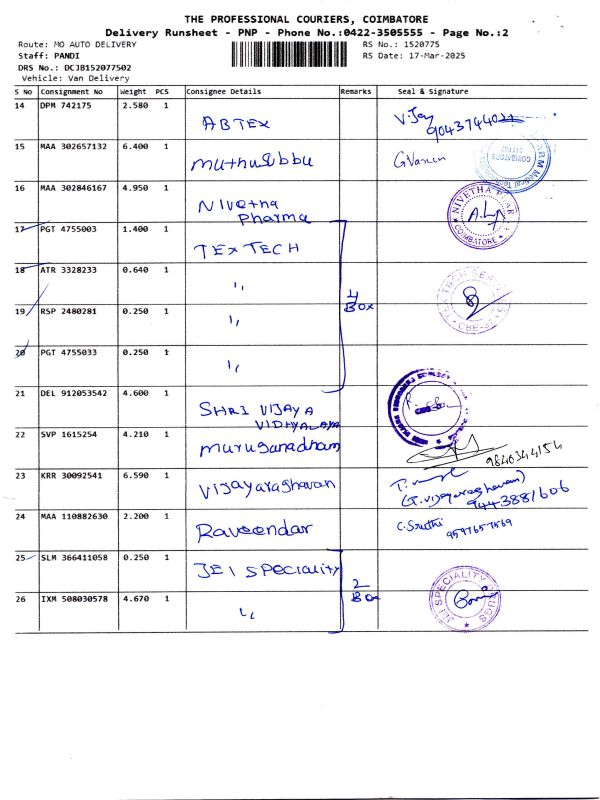 THE PROFESSIONAL COURIERS, COIMBATORE
Delivery Runsheet - PNP - Phone No.:0422-3505555 - Page No.:2
Route: MO AUTO DELIVERY
RS No.: 1520775
Staff: PANDI
RS Date: 17-Mar-2025
DRS No.: DCJB152077502
Vehicle: Van Delivery
S No Consignment No Weight PCS Consignee Details Remarks Seal & Signature
14 DPM 742175 2.580 1 ABTEX V.Jay
15 MAA 302657132 6.400 1 muthusibbu
COIMBATORE
16 MAA 302846167 4.950 1 Nivetha Pharma
NIVETHA
COIMBATORE
17 PGT 4755003 1.400 1 TEXTECH
18 ATR 3328233 0.640 1 "
4 Box
19 RSP 2480281 0.250 1 "
20 PGT 4755033 0.250 1 "
21 DEL 912053542 4.600 1 SHRI VIJAYA VIDHYALAYA
22 SVP 1615254 4.210 1 muruganadham
9840344154
23 KRR 30092541 6.590 1 Vijayaraghavan
(T.vijayaraghavan)
9443881606
24 MAA 110882630 2.200 1 Raveendar C.Sruthi
9597657569
25 SLM 366411058 0.250 1 JEI SPECIALITY
2 Box
26 IXM 508030578 4.670 1 "
JEI SPECIALITY DRUGS